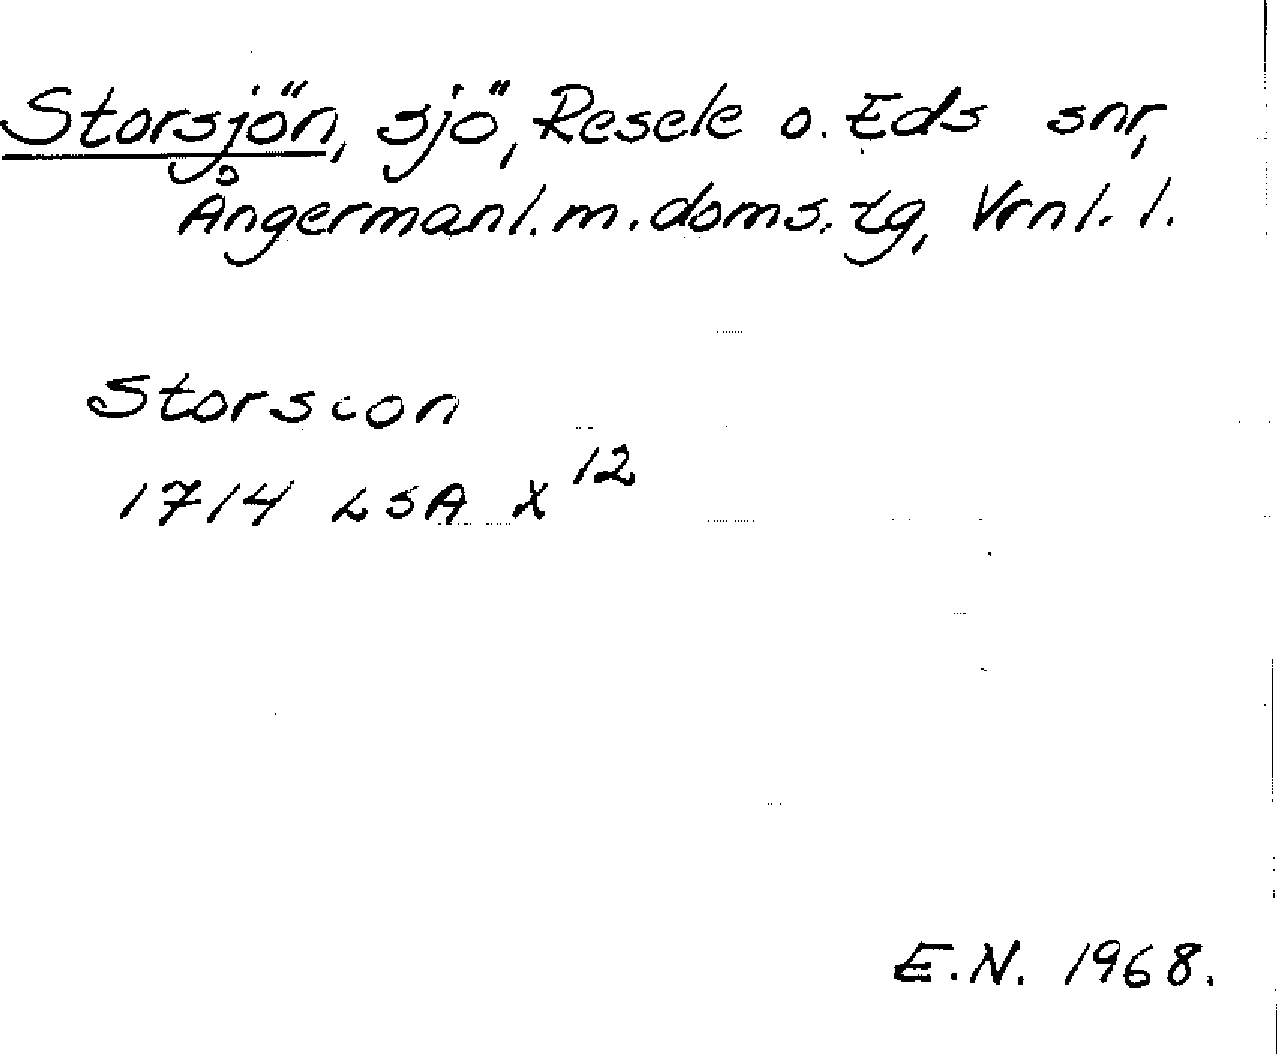 Storsjön, sjö, Resele o. Eds snr,
Ångermanl. m. doms. tg, Vrnl. l.
Storscon
1714 LSA X 12
E.N. 1968.